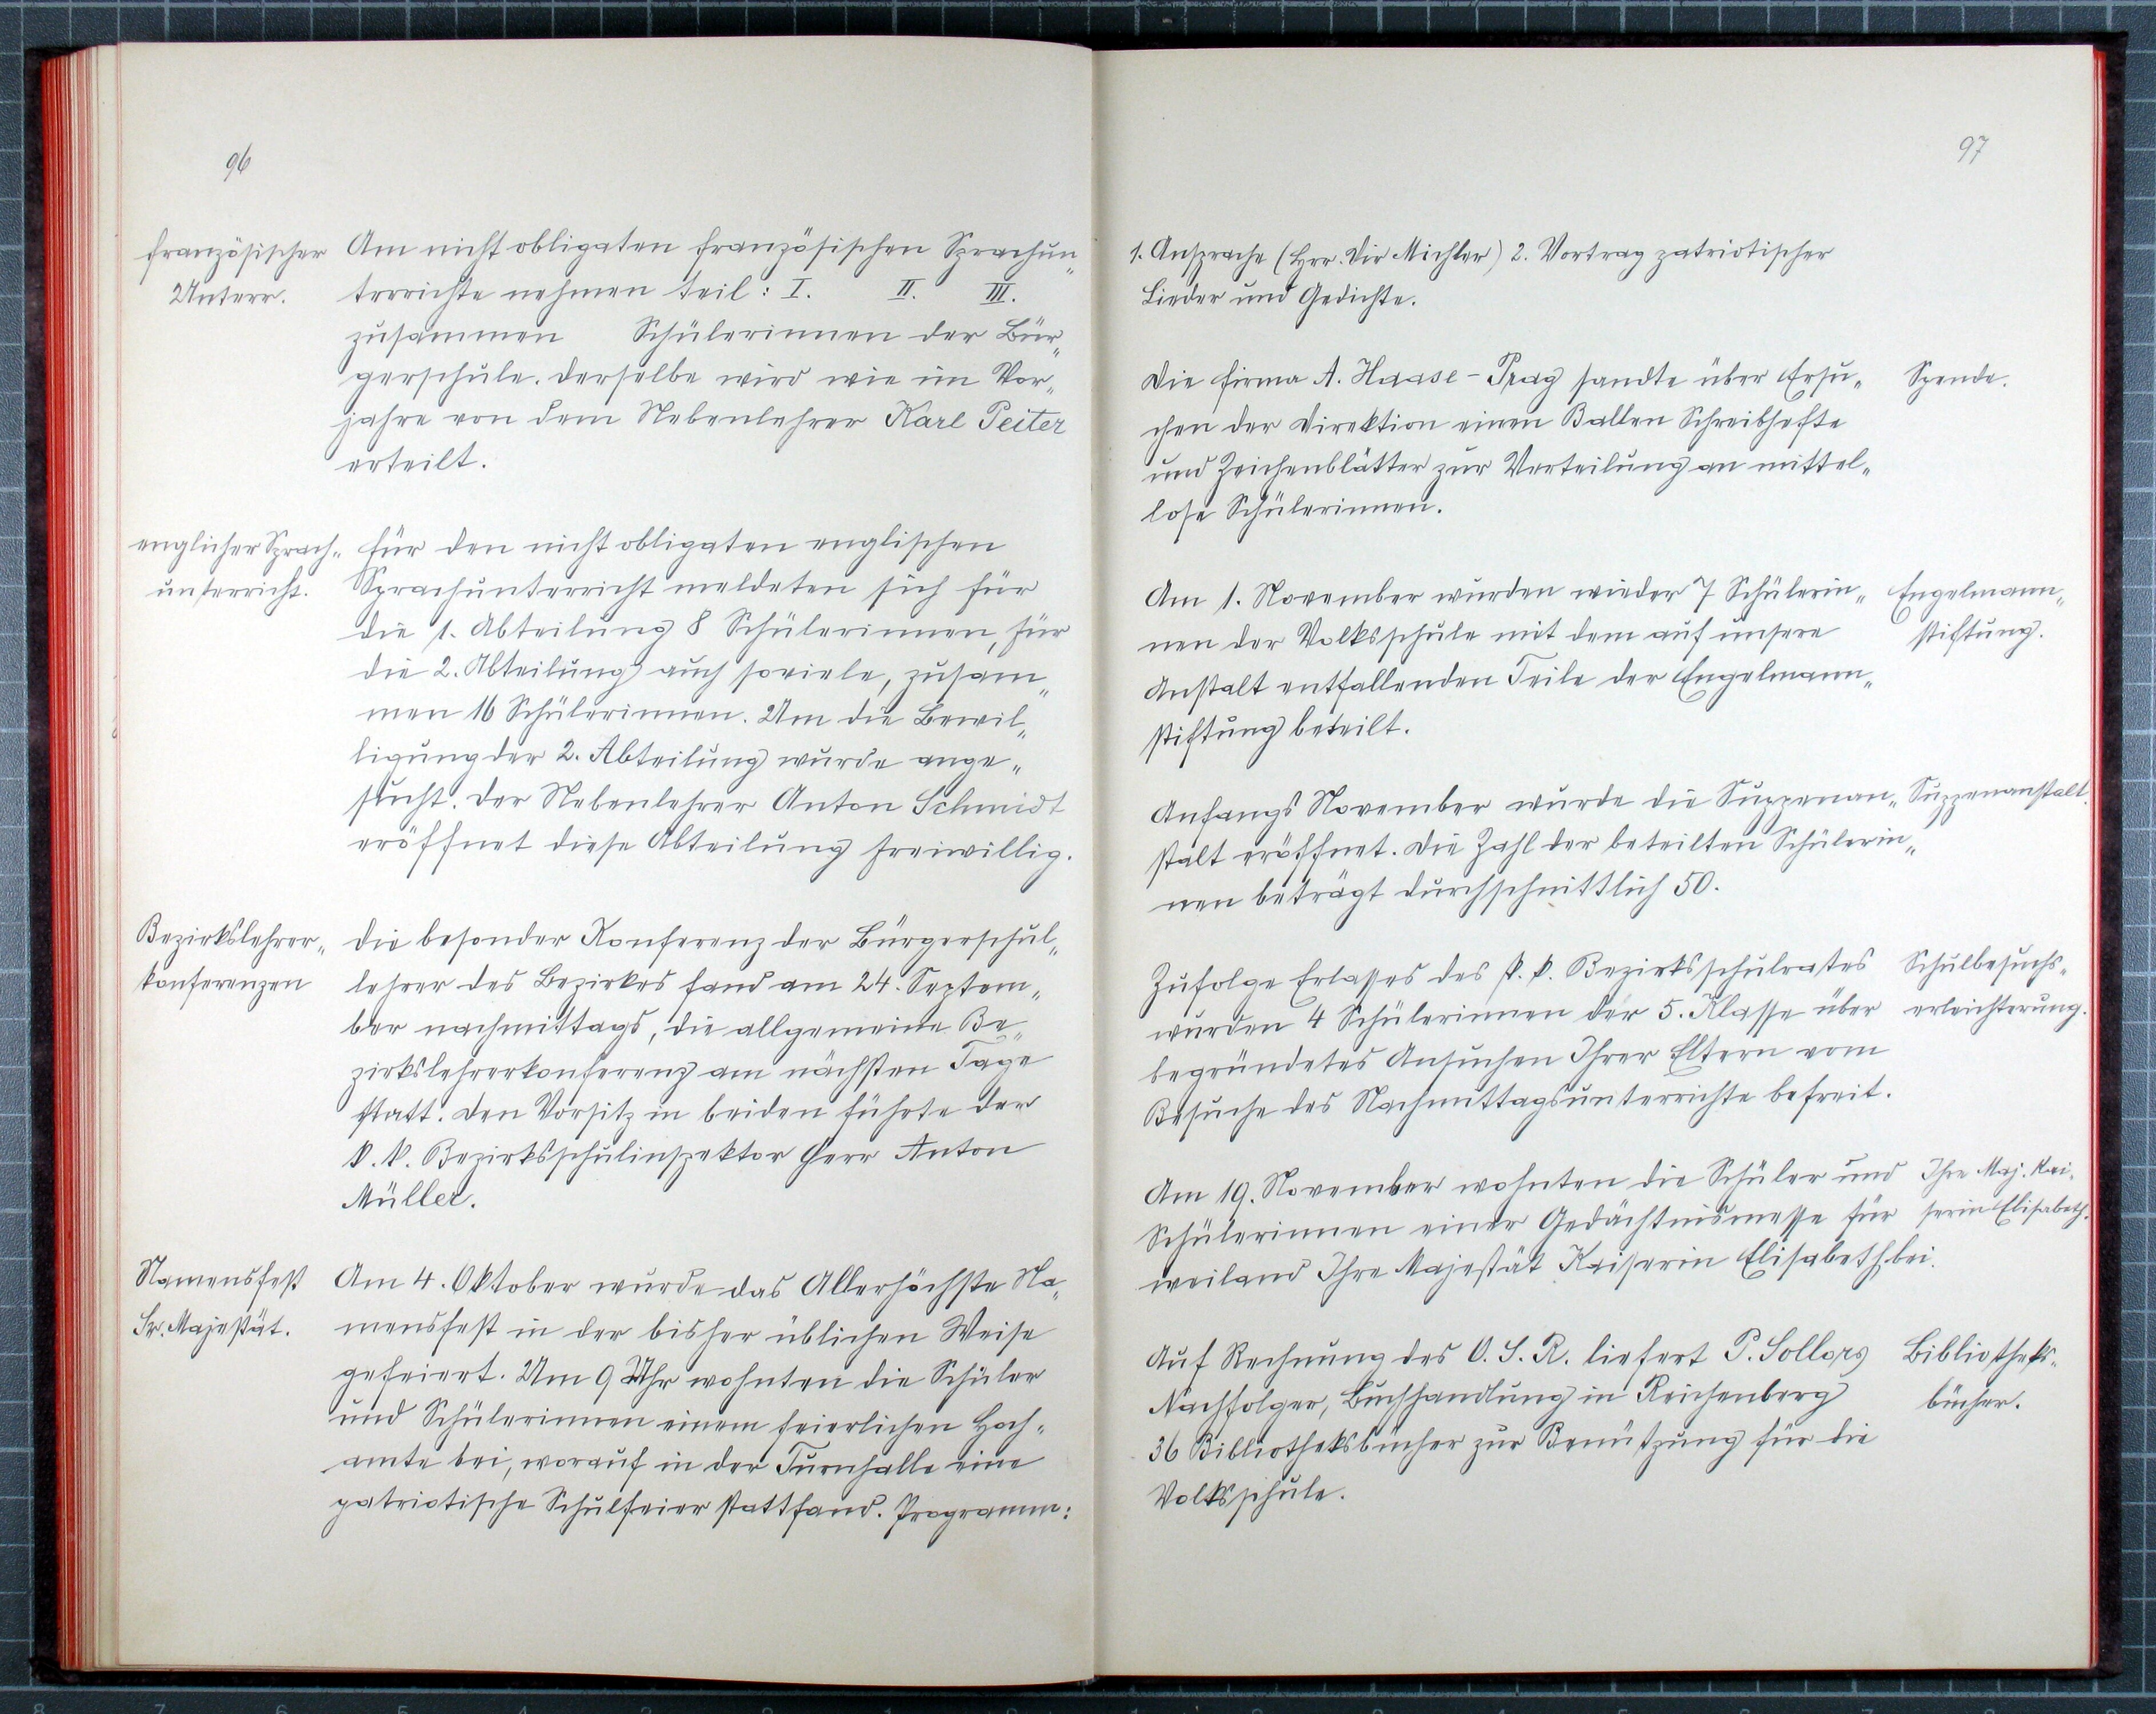 96
französischer
Unterr.
Am nicht obligaten französischen Sprachun„
terrichte nehmen teil: I. II. III.
zusammen Schülerinnen der Bür„
gerschule. Derselbe wird wie im Vor„
jahre von dem Nebenlehrer Karl Peiter
erteilt.
englischer Sprach„
unterricht.
Für den nicht obligaten englischen
Sprachunterricht meldeten sich für
die 1. Abteilung 8 Schülerinnen, für
die 2. Abteilung auch soviele, zusam„
men 16 Schülerinnen. Um die Bewil„
ligung der 2. Abteilung wurde ange„
sucht. Der Nebenlehrer Anton Schmidt
eröffnet diese Abteilung freiwillig.
Bezirkslehrer„
konferenzen
Die besonder Konferenz der Bürgerschul„
lehrer des Bezirkes fand am 24. Septem„
ber nachmittags, die allgemeine Be„
zirkslehrerkonferenz am nächsten Tage
statt. Den Vorsitz in beiden führte der
k. k. Bezirksschulinspektor Herr Anton
Müller.
Namensfest
Sr. Majestät.
Am 4. Oktober wurde das Allerhöchste Na„
mensfest in der bisher üblichen Weise
gefeiert. Um 9 Uhr wohnten die Schüler
und Schülerinnen einem feierlichen Hoch„
amte bei, worauf in der Turnhalle eine
patriotische Schulfeier stattfand. Programm:
97
1. Ansprache (Herr. Dir Michler) 2. Vortrag patriotischer
Lieder und Gedichte.
Die Firma A. Haase-Prag sandte über Ersu„
chen der Direktion einen Ballen Schreibhefte
und Zeichenblätter zur Verteilung an mittel„
lose Schülerinnen.
Spende.
Am 1. November wurden wieder 7 Schülerin„
nen der Volksschule mit dem auf unsere
Anstalt entfallenden Teile der Engelmann„
stiftung beteilt.
Engelmann„
stiftung.
Anfangs November wurde die Suppenan„
stalt eröffnet. Die Zahl der beteilten Schülerin„
nen beträgt durchschnittlich 50.
Suppenanstalt.
Zufolge Erlasses des k. k. Bezirksschulrates
wurden 4 Schülerinnen der 5. Klasse über
begründetes Ansuchen Ihrer Eltern vom
Besuche des Nachmittagsunterrichte befreit.
Schulbesuchs„
erleichterung.
Am 19. November wohnten die Schüler und
Schülerinnen einer Gedächtnismesse für
weiland Ihre Majestät Kaiserin Elisabeth bei.
Ihre Maj. Kai„
serin Elisabeth.
Auf Rechnung des O. S. R. liefert P. Sollors
Nachfolger, Buchhandlung in Reichenberg
36 Bibliotheksbücher zur Benützung für die
Volksschule.
Bibliotheks„
bücher.